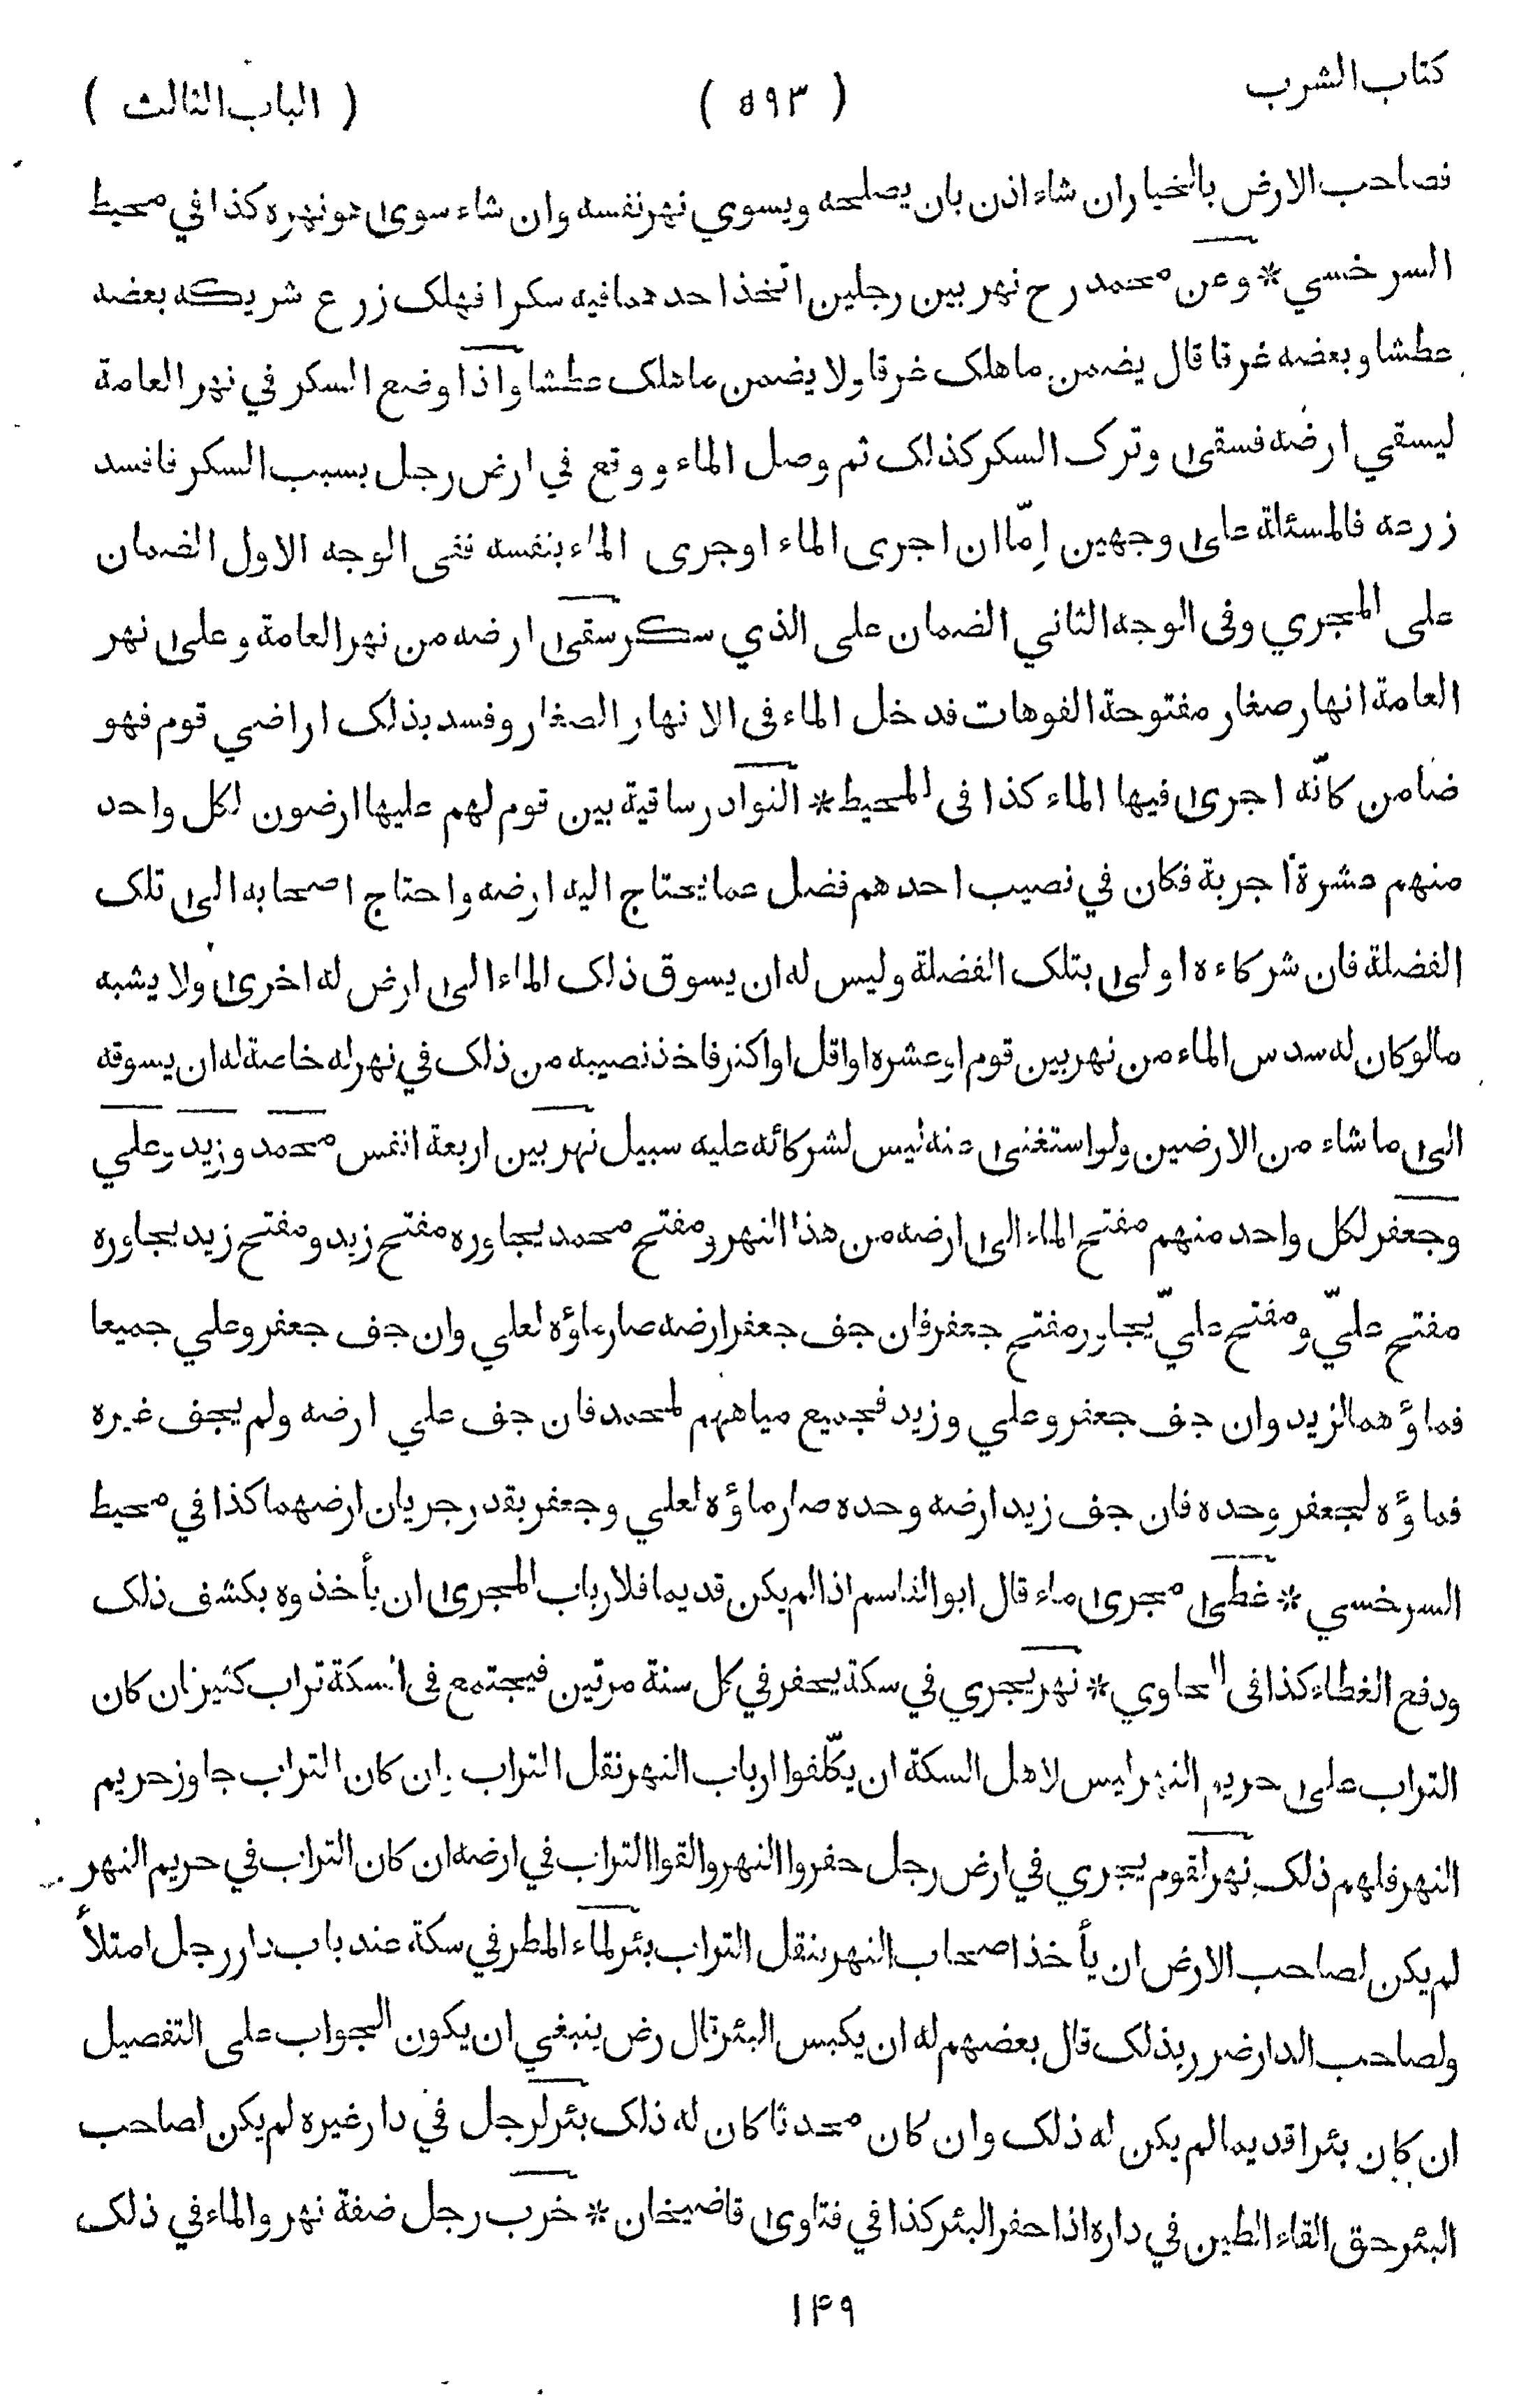 كتاب الشرب
( ٥٩٣ )
( الباب الثالث )
فصاحب الارض بالخيار ان شاء اذن بان يصلحه ويسوي نهر نفسه وان شاء سوى هو نهره كذا في محيط
السرخسي * وعن محمد رح نهر بين رجلين اتخذ احدهما فيه سكرا فهلك زرع شريكه بعضه
عطشا وبعضه غرقا قال يضمن ما هلك غرقا ولا يضمن ما هلك عطشا واذا وضع السكر في نهر العامة
ليسقي ارضه فسقى وترك السكر كذلك ثم وصل الماء ووقع في ارض رجل بسبب السكر فافسد
زرعه فالمسئلة على وجهين اِمّا ان اجرى الماء او جرى الماء بنفسه ففى الوجه الاول الضمان
على المجري وفى الوجه الثاني الضمان على الذي سكر سقى ارضه من نهر العامة وعلى نهر
العامة انهار صغار مفتوحة الفوهات فدخل الماء فى الانهار الصغار وفسد بذلك اراضي قوم فهو
ضامن كانّه اجرى فيها الماء كذا فى المحيط * النوادر ساقية بين قوم لهم عليها ارضون لكل واحد
منهم عشرة اجربة فكان في نصيب احدهم فضل عما يحتاج اليه ارضه واحتاج اصحابه الى تلك
الفضلة فان شركاءه اولى بتلك الفضلة وليس له ان يسوق ذلك الماء الى ارض له اخرى ولا يشبه
مالو كان له سدس الماء من نهر بين قوم او عشره او اقل او اكثر فاخذ نصيبه من ذلك في نهر له خاصة له ان يسوقه
الى ما شاء من الارضين ولو استغنى عنه ليس لشركائه عليه سبيل نهر بين اربعة انفس محمد وزيد وعلي
وجعفر لكل واحد منهم مفتح الماء الى ارضه من هذا النهر ومفتح محمد يجاوره مفتح زيد ومفتح زيد يجاوره
مفتح عليّ ومفتح عليّ يجاور مفتح جعفر فان جف جعفر ارضه صار ماؤه لعلي وان جف جعفر وعلي جميعا
فماؤهما لزيد وان جف جعفر وعلي وزيد فجميع مياههم لمحمد فان جف علي ارضه ولم يجف غيره
فماؤه لجعفر وحده فان جف زيد ارضه وحده صار ماؤه لعلي وجعفر بقدر جريان ارضهما كذا في محيط
السرخسي * غطى مجرى ماء قال ابو القاسم اذا لم يكن قديما فلارباب المجرى ان يأخذوه بكشف ذلك
ودفع الغطاء كذا فى الحاوي * نهر يجري في سكة يحفر في كل سنة مرتين فيجتمع فى السكة تراب كثير ان كان
التراب على حريم النهر ليس لاهل السكة ان يكلّفوا ارباب النهر نقل التراب وان كان التراب جاوز حريم
النهر فلهم ذلك نهر لقوم يجري في ارض رجل حفروا النهر والقوا التراب في ارضه ان كان التراب في حريم النهر
لم يكن لصاحب الارض ان يأخذ اصحاب النهر بنقل التراب بئر لماء المطر في سكة عند باب دار رجل امتلأ
ولصاحب الدار ضرر بذلك قال بعضهم له ان يكبس البئر قال رض ينبغي ان يكون الجواب على التفصيل
ان كان بئرا قديما لم يكن له ذلك وان كان محدثا كان له ذلك بئر لرجل في دار غيره لم يكن لصاحب
البئر حق القاء الطين في داره اذا حفر البئر كذا في فتاوى قاضيخان * خرب رجل ضفة نهر والماء في ذلك
١۴٩